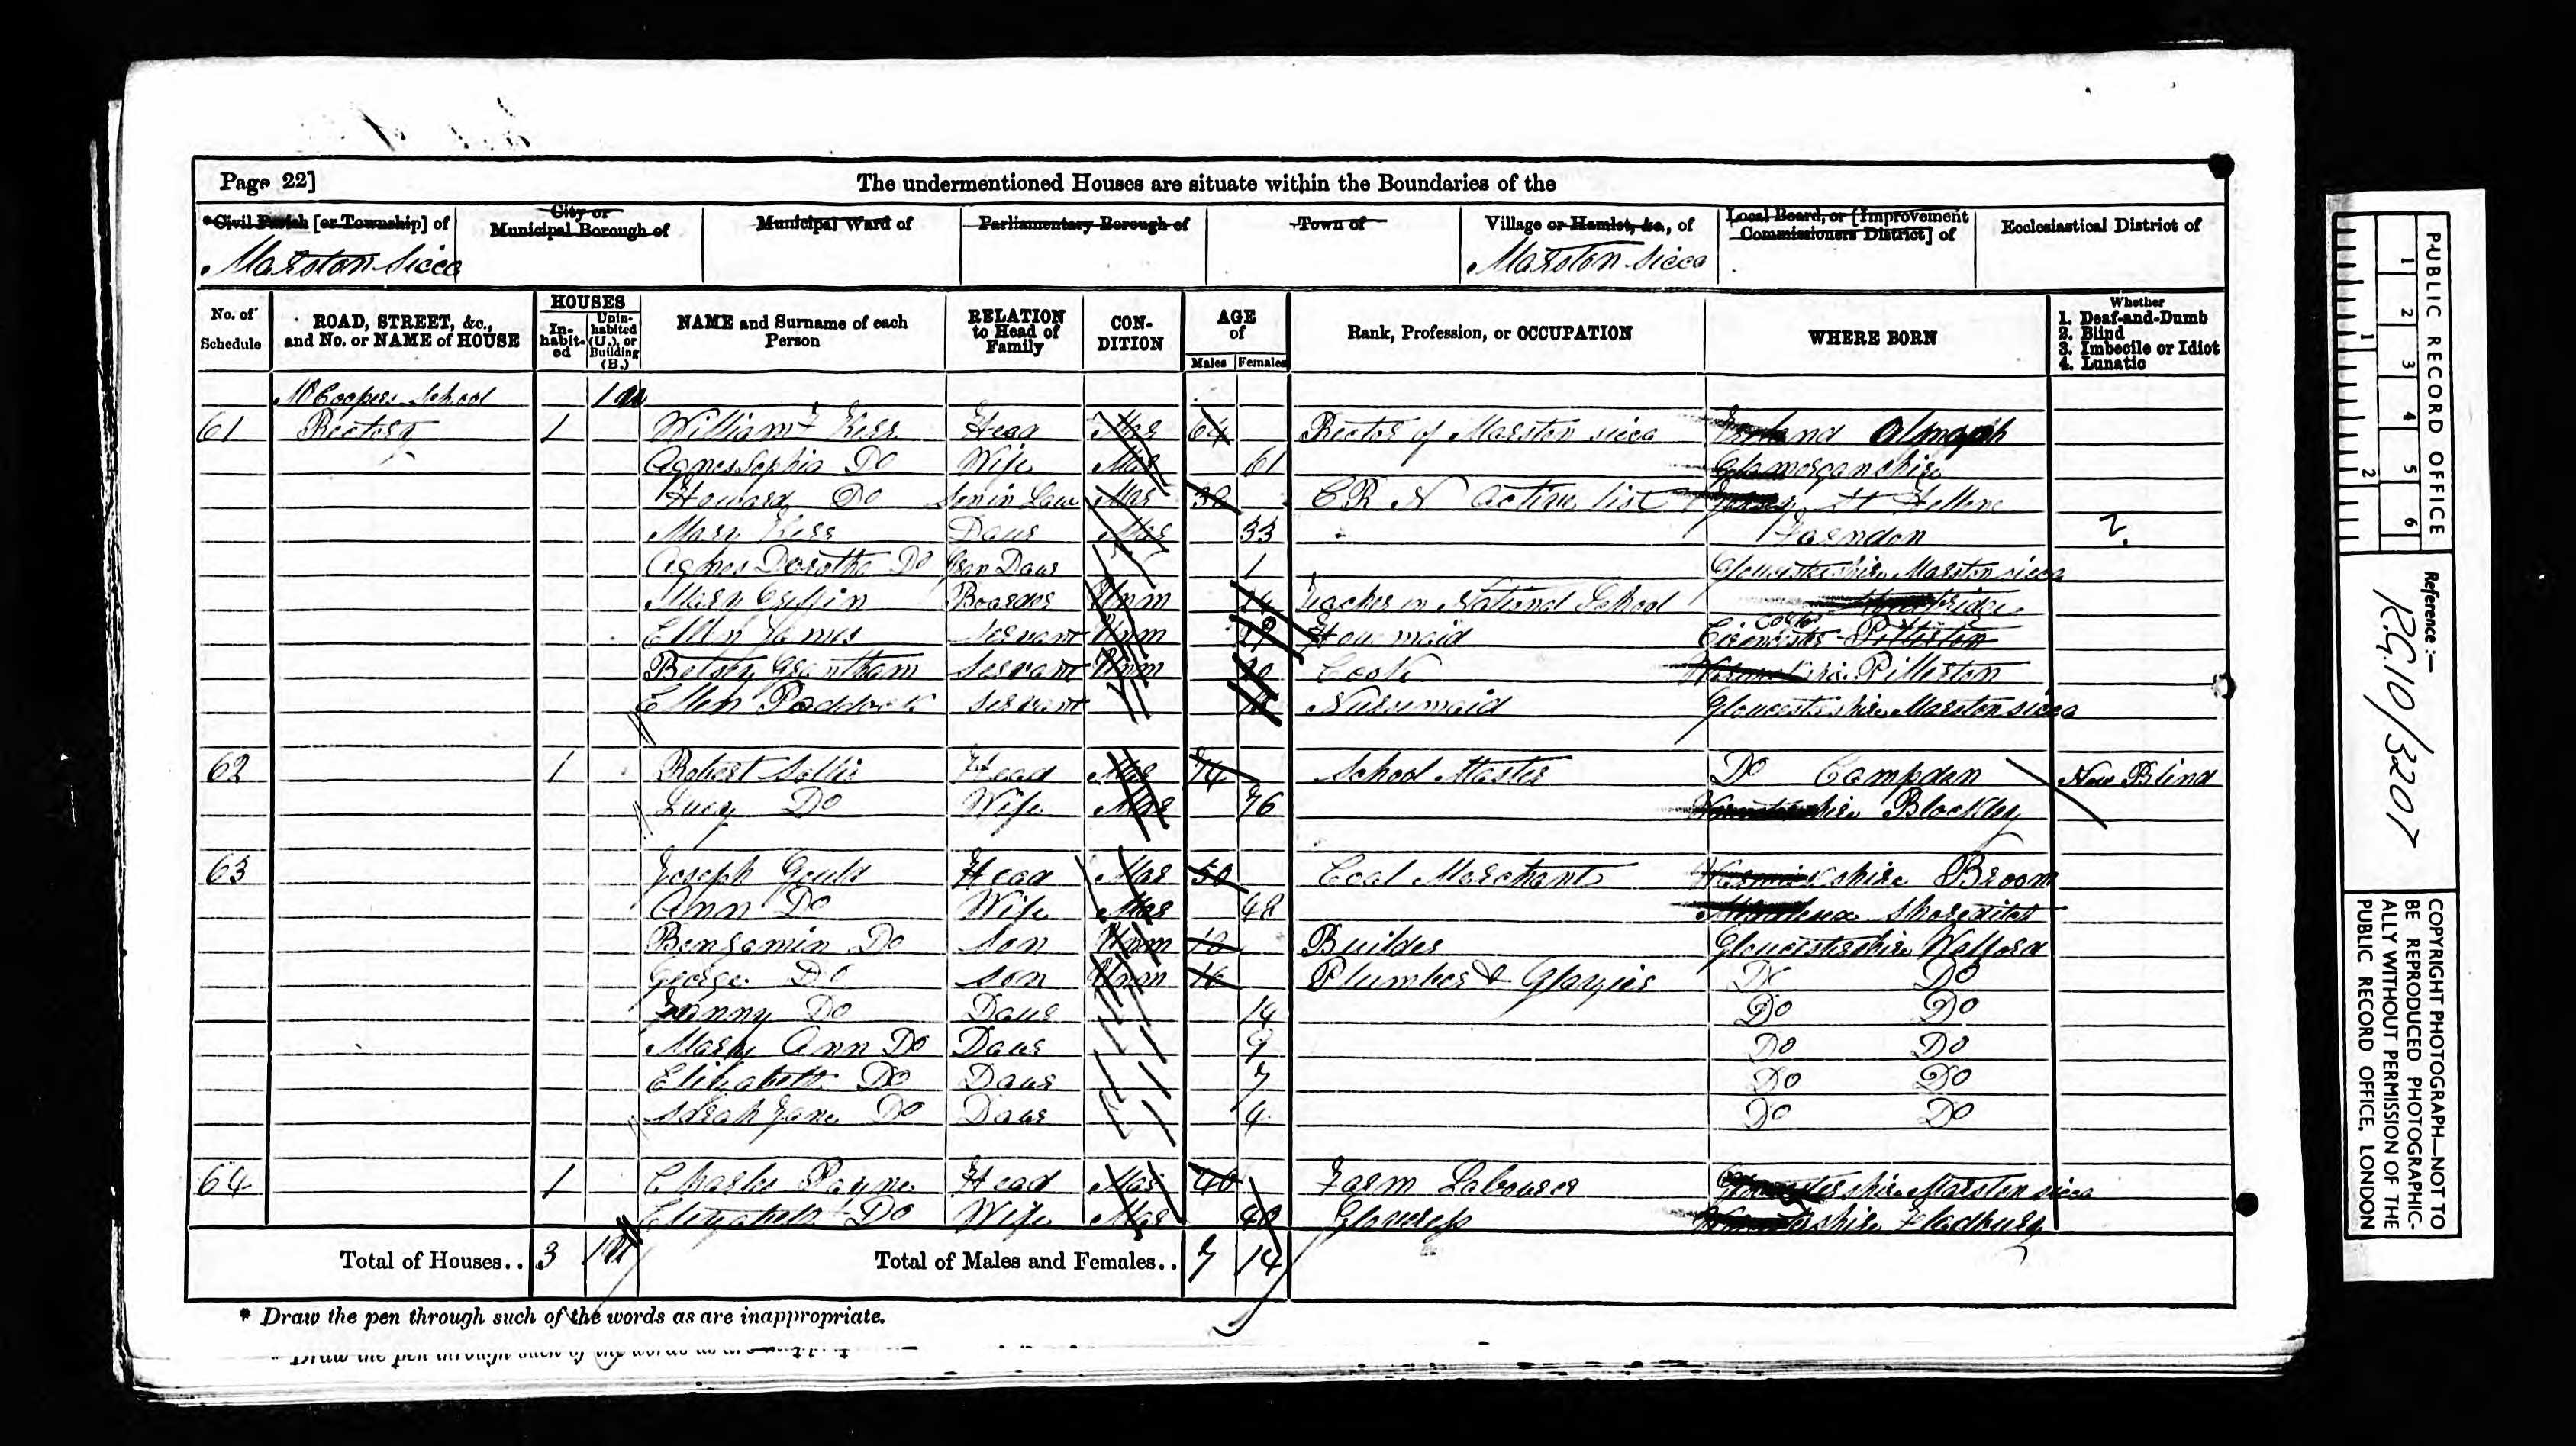 Page 22] The undermentioned Houses are situate within the Boundaries of the
*Civil Parish [or Township] of
City or Municipal Borough of
Municipal Ward of
Parliamentary Borough of
Town of
Village or Hamlet, &c., of
Local Board, or [Improvement Commissioners District] of
Ecclesiastical District of
Marston Sicca Marston Sicca
No. of Schedule
ROAD, STREET, &c., and No. or NAME of HOUSE
HOUSES
In-habit-ed
Unin-habited (U.), or Building (B.)
NAME and Surname of each Person
RELATION to Head of Family
CON-DITION
AGE of
Males Females
Rank, Profession, or OCCUPATION
WHERE BORN
Whether
1. Deaf-and-Dumb
2. Blind
3. Imbecile or Idiot
4. Lunatic
Coopers School 1
61 Rectory 1 William Head Mar 64 Rector of Marston sicca
Agnes Sophia Do Wife Mar 61 Glamorganshire
Howard Do Son in Law Mar 38 C R N active list
Mary Daur Mar 33 Farndon
Agnes Dorothea Do Gran Daur 1 Gloucestershire Marston sicca
Mary Boarder Unm Teacher in National School
Ellen James Servant Unm 19 Housemaid
Betsey Grantham Servant Unm Cook Pillerton
Ellen Paddock Servant Nursemaid Gloucestershire Marston sicca
62 1 Robert Sollis Head Mar 74 School Master Do Campden Now Blind
Lucy Do Wife Mar 76 Blockley
63 Joseph Gould Head Mar 50 Coal Merchant Warwickshire Broom
Ann Do Wife Mar 48 Middlesex Shoreditch
Benjamin Do Son Unm 18 Builder Gloucestershire Welford
George Do Son Unm 16 Plumber & Glazier Do Do
Fanny Do Daur 14 Do Do
Mary Ann Do Daur 9 Do Do
Elizabeth Do Daur 7 Do Do
Sarah Jane Do Daur 4 Do Do
64 1 Charles Payne Head Mar 40 Farm Labourer Gloucestershire Marston sicca
Elizabeth Do Wife Mar 40 Gloveress Fladbury
Total of Houses.. 3 Total of Males and Females.. 7 14
* Draw the pen through such of the words as are inappropriate.
PUBLIC RECORD OFFICE
1 2 3 4 5 6
1 2
Reference:-
R.G.10/3207
COPYRIGHT PHOTOGRAPH—NOT TO
BE REPRODUCED PHOTOGRAPHIC-
ALLY WITHOUT PERMISSION OF THE
PUBLIC RECORD OFFICE, LONDON